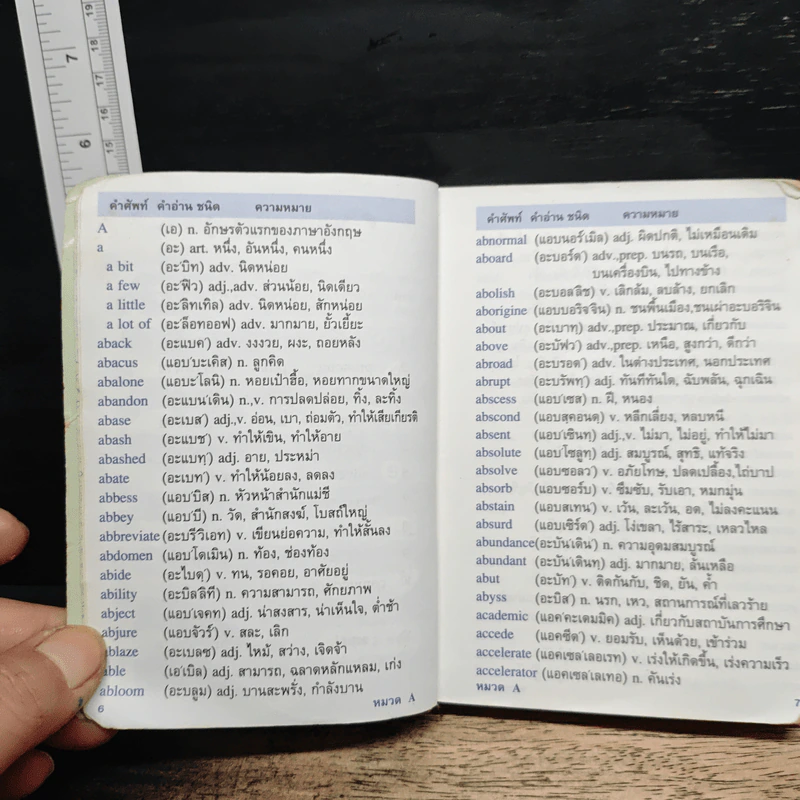 คำศัพท์ คำอ่าน ชนิด ความหมาย
A (เอ) n. อักษรตัวแรกของภาษาอังกฤษ
a (อะ) art. หนึ่ง, อันหนึ่ง, คนหนึ่ง
a bit (อะ'บิท) adv. นิดหน่อย
a few (อะ'ฟิว) adj.,adv. ส่วนน้อย, นิดเดียว
a little (อะ'ลิทเทิล) adv. นิดหน่อย, สักหน่อย
a lot of (อะ'ล็อทออฟ) adv. มากมาย, ยั้วเยี้ยะ
aback (อะแบค') adv. งงงวย, ผงะ, ถอยหลัง
abacus (แอบ'บะเคิส) n. ลูกคิด
abalone (แอบะ'โลนิ) n. หอยเป๋าฮื้อ, หอยทากขนาดใหญ่
abandon (อะแบน'เดิน) n.,v. การปลดปล่อย, ทิ้ง, ละทิ้ง
abase (อะเบส') adj.,v. อ่อน, เบา, ถ่อมตัว, ทำให้เสียเกียรติ
abash (อะแบช') v. ทำให้เขิน, ทำให้อาย
abashed (อะแบทฺ') adj. อาย, ประหม่า
abate (อะเบท') v. ทำให้น้อยลง, ลดลง
abbess (แอบ'บิส) n. หัวหน้าสำนักแม่ชี
abbey (แอบ'บี) n. วัด, สำนักสงฆ์, โบสถ์ใหญ่
abbreviate (อะบรีวิเอท) v. เขียนย่อความ, ทำให้สั้นลง
abdomen (แอบ'โดเมิน) n. ท้อง, ช่องท้อง
abide (อะไบดฺ') v. ทน, รอคอย, อาศัยอยู่
ability (อะบิล'ลิที) n. ความสามารถ, ศักยภาพ
abject (แอบ'เจคท) adj. น่าสงสาร, น่าเห็นใจ, ต่ำช้า
abjure (แอบจัวร์') v. สละ, เลิก
ablaze (อะเบลซ') adj. ไหม้, สว่าง, เจิดจ้า
able (เอ'เบิล) adj. สามารถ, ฉลาดหลักแหลม, เก่ง
abloom (อะบลูม) adj. บานสะพรั่ง, กำลังบาน
6 หมวด A
คำศัพท์ คำอ่าน ชนิด ความหมาย
abnormal (แอบนอร์'เมิล) adj. ผิดปกติ, ไม่เหมือนเดิม
aboard (อะบอร์ด') adv.,prep. บนรถ, บนเรือ,
บนเครื่องบิน, ไปทางข้าง
abolish (อะบอล'ลิช) v. เลิกล้ม, ลบล้าง, ยกเลิก
aborigine (แอบบอริจจิน) n. ชนพื้นเมือง,ชนเผ่าอะบอริจิน
about (อะเบาทฺ) adv.,prep. ประมาณ, เกี่ยวกับ
above (อะบัฟว') adv.,prep. เหนือ, สูงกว่า, ดีกว่า
abroad (อะบรอด') adv. ในต่างประเทศ, นอกประเทศ
abrupt (อะบรัพทฺ') adj. ทันทีทันใด, ฉับพลัน, ฉุกเฉิน
abscess (แอบ'เซส) n. ฝี, หนอง
abscond (แอบสคอนดฺ) v. หลีกเลี่ยง, หลบหนี
absent (แอบ'เซินทฺ) adj.,v. ไม่มา, ไม่อยู่, ทำให้ไม่มา
absolute (แอบ'โซลูทฺ) adj. สมบูรณ์, สุทธิ, แท้จริง
absolve (แอบซอลว') v. อภัยโทษ, ปลดเปลื้อง,ไถ่บาป
absorb (แอบซอร์บ) v. ซึมซับ, รับเอา, หมกมุ่น
abstain (แอบสเทน') v. เว้น, ละเว้น, อด, ไม่ลงคะแนน
absurd (แอบเซิร์ด') adj. โง่เขลา, ไร้สาระ, เหลวไหล
abundance(อะบัน'เดิน') n. ความอุดมสมบูรณ์
abundant (อะบัน'เดินทฺ) adj. มากมาย, ล้นเหลือ
abut (อะบัท') v. ติดกันกับ, ชิด, ยัน, ค้ำ
abyss (อะบิส') n. นรก, เหว, สถานการณ์ที่เลวร้าย
academic (แอค'คะเดมมิค) adj. เกี่ยวกับสถาบันการศึกษา
accede (แอคซีด') v. ยอมรับ, เห็นด้วย, เข้าร่วม
accelerate (แอคเซล'เลอเรท) v. เร่งให้เกิดขึ้น, เร่งความเร็ว
accelerator (แอคเซล'เลเทอ) n. คันเร่ง
หมวด A 7
19
18
7
17
16
6
15